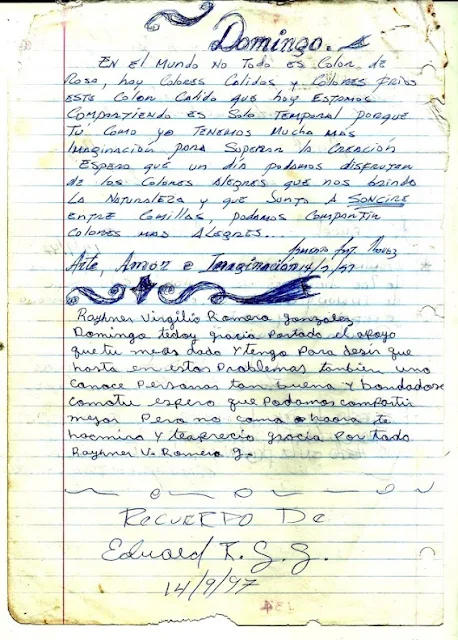 14/9/97
Domingo.
En el Mundo no Todo es Color de
Rosa, hay Colores Calidos y Colores Frios
este Color Calido que hoy Estamos
Compartiendo es Solo Temporal porque
Tú Como yo Tenemos Mucha más
Imaginación para Superar la Creación
Espero que un día podamos disfrutar
de los Colores Alegres que nos brinda
La Naturaleza y que Junto A SONCIRE
entre Comillas, podamos Compartir
Colores mas Alegres...
Arte, Amor e Imaginación 14/9/97
Rayhner Virgilio Romero gonzalez
Domingo tedoy gracia portado el apoyo
que tu meas dado Y tengo Para desir que
hasta en estos Problemas tanbien uno
conoce Personas tan buena Y bondadose
comotu espero que Podamos compartir
mejor Pero no como ahora te
hacmiro Y teaprecio gracia por tado
Rayhner V. Romero g.
Recuerdo De
Eduard R. G. G.
14/9/97